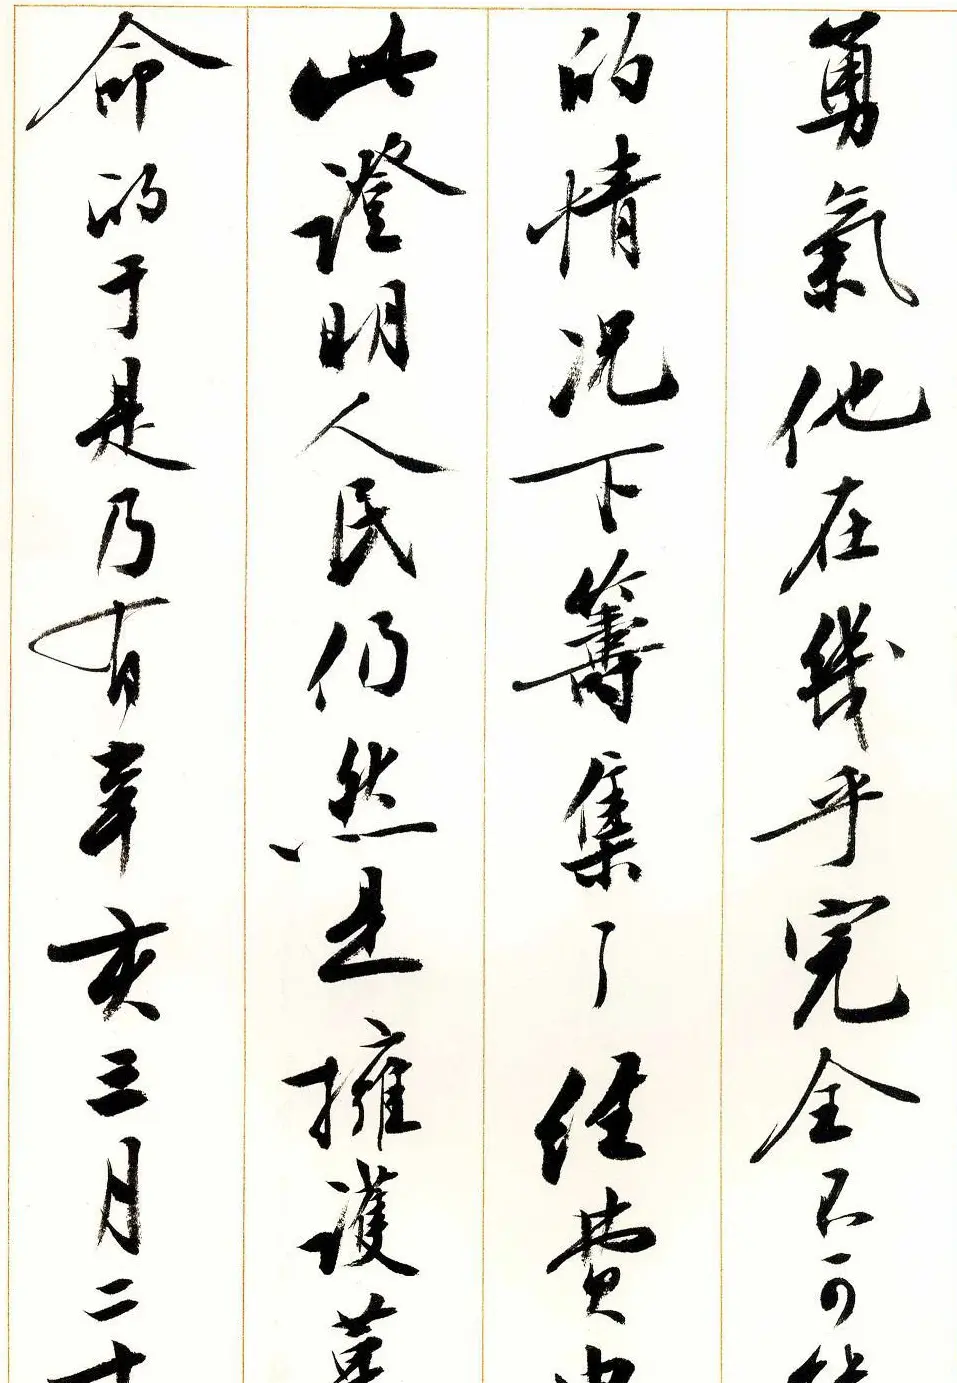 勇氣他在幾乎完全不可能
的情况下籌集了經費
此證明人民仍然是擁護革
命的于是乃有辛亥三月二十